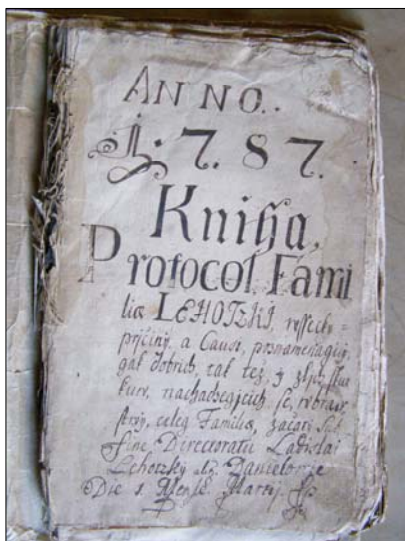 ANNO.
1.7.87.
Kniha,
Protocol, Fami
liæ LEHOTZKI, wssecke
pricini, a Causi, poznamenagicy,
gak dobrich, tak tež, y zlich,
nachadzegicich, se, v
celeg Familie, začati sub
fine Directoratu Ladislai
Lehotzky
Die 1 Mense Martij